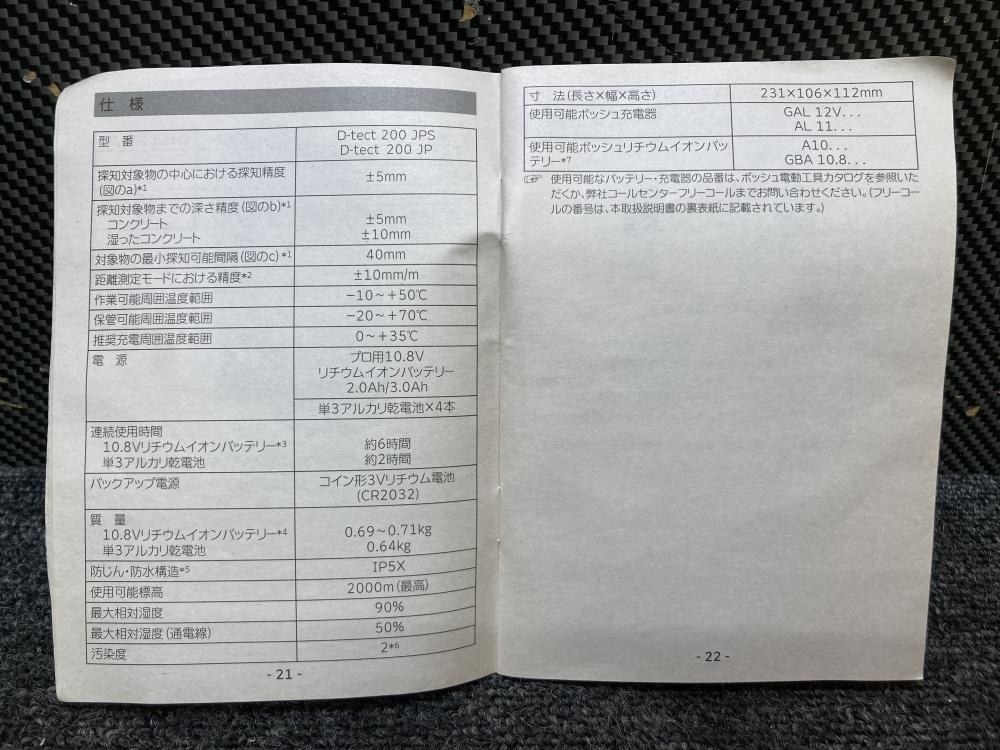 仕 様
型 番
D-tect 200 JPS
D-tect 200 JP
探知対象物の中心における探知精度
(図のa)*1
±5mm
探知対象物までの深さ精度(図のb)*1
コンクリート
±5mm
湿ったコンクリート
±10mm
対象物の最小探知可能間隔(図のc)*1
40mm
距離測定モードにおける精度*2
±10mm/m
作業可能周囲温度範囲
−10～+50℃
保管可能周囲温度範囲
−20～+70℃
推奨充電周囲温度範囲
0～+35℃
電 源
プロ用10.8V
リチウムイオンバッテリー
2.0Ah/3.0Ah
単3アルカリ乾電池×4本
連続使用時間
10.8Vリチウムイオンバッテリー*3
約6時間
単3アルカリ乾電池
約2時間
バックアップ電源
コイン形3Vリチウム電池
(CR2032)
質 量
10.8Vリチウムイオンバッテリー*4
0.69～0.71kg
単3アルカリ乾電池
0.64kg
防じん・防水構造*5
IP5X
使用可能標高
2000m(最高)
最大相対湿度
90%
最大相対湿度(通電線)
50%
汚染度
2*6
- 21 -
寸 法(長さ×幅×高さ)
231×106×112mm
使用可能ボッシュ充電器
GAL 12V...
AL 11...
使用可能ボッシュリチウムイオンバッ
テリー*7
A10...
GBA 10.8...
☞ 使用可能なバッテリー・充電器の品番は、ボッシュ電動工具カタログを参照いた
だくか、弊社コールセンターフリーコールまでお問い合わせください。(フリーコー
ルの番号は、本取扱説明書の裏表紙に記載されています。)
- 22 -